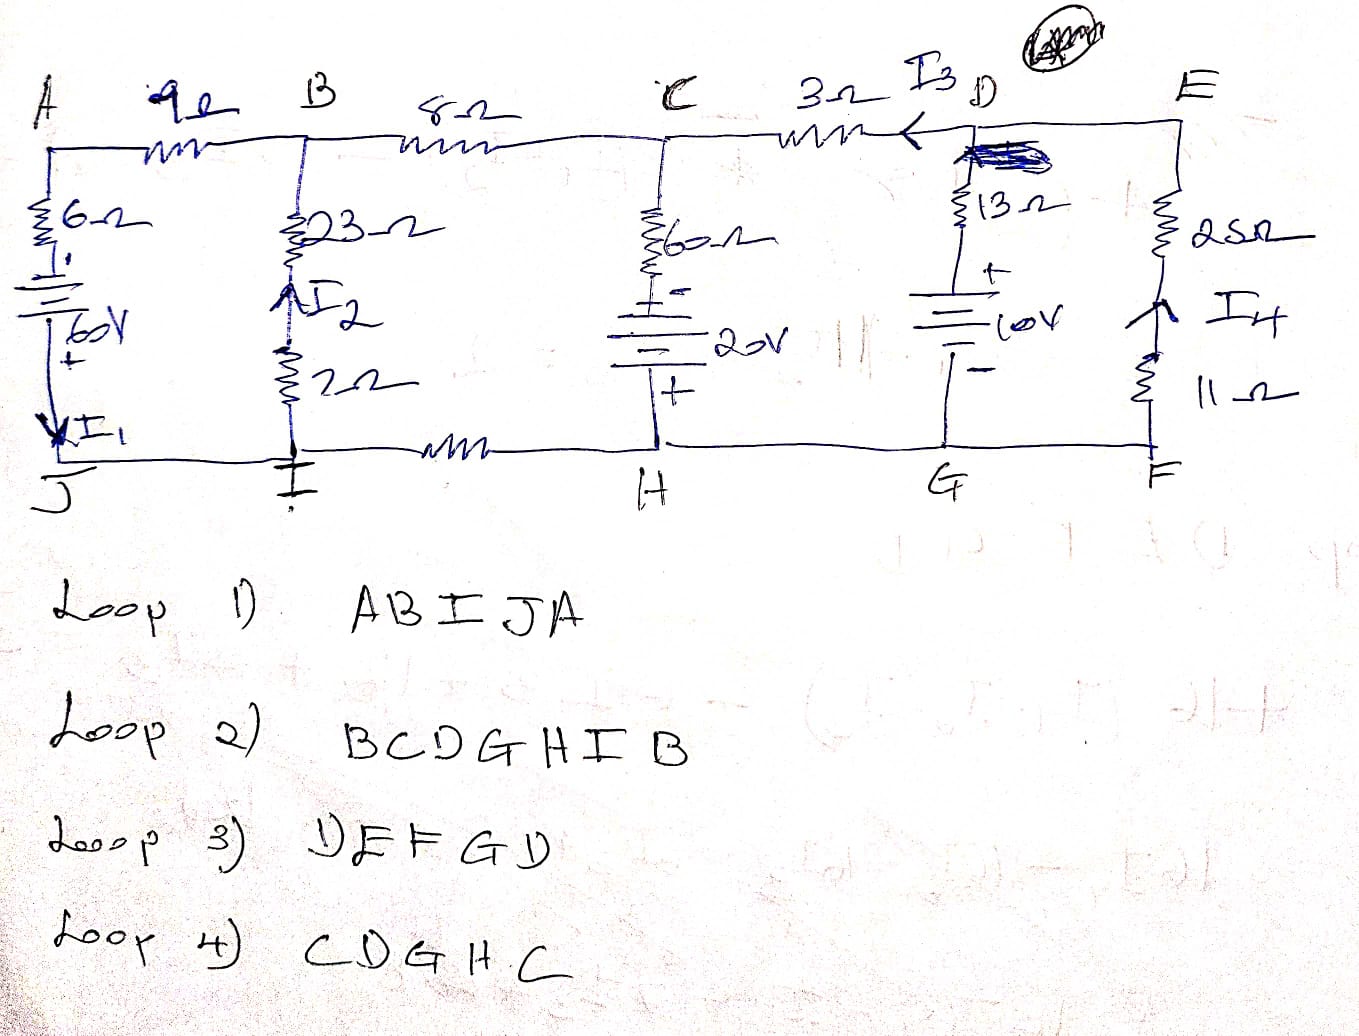 A 9Ω B 8Ω C 3Ω I3 D E
6Ω 23Ω 60Ω 13Ω 25Ω
- - +
60V I2 20V 10V I4
+ 2Ω + - 11Ω
I1
J I H G F
Loop 1) ABIJA
Loop 2) BCDGHIB
Loop 3) DEFGD
Loop 4) CDGHC